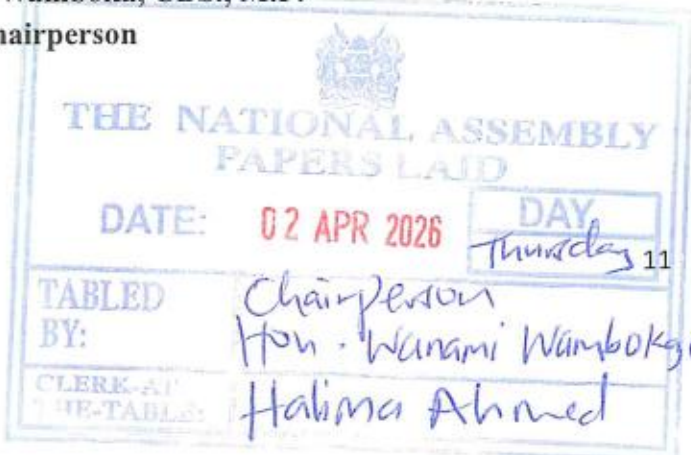 hairperson
THE NATIONAL ASSEMBLY
PAPERS LAID
DATE: 02 APR 2026 DAY
Thursday 11
TABLED BY: Chairperson
Hon. Wanami Wamboka
CLERK-AT THE-TABLE: Halima Ahmed